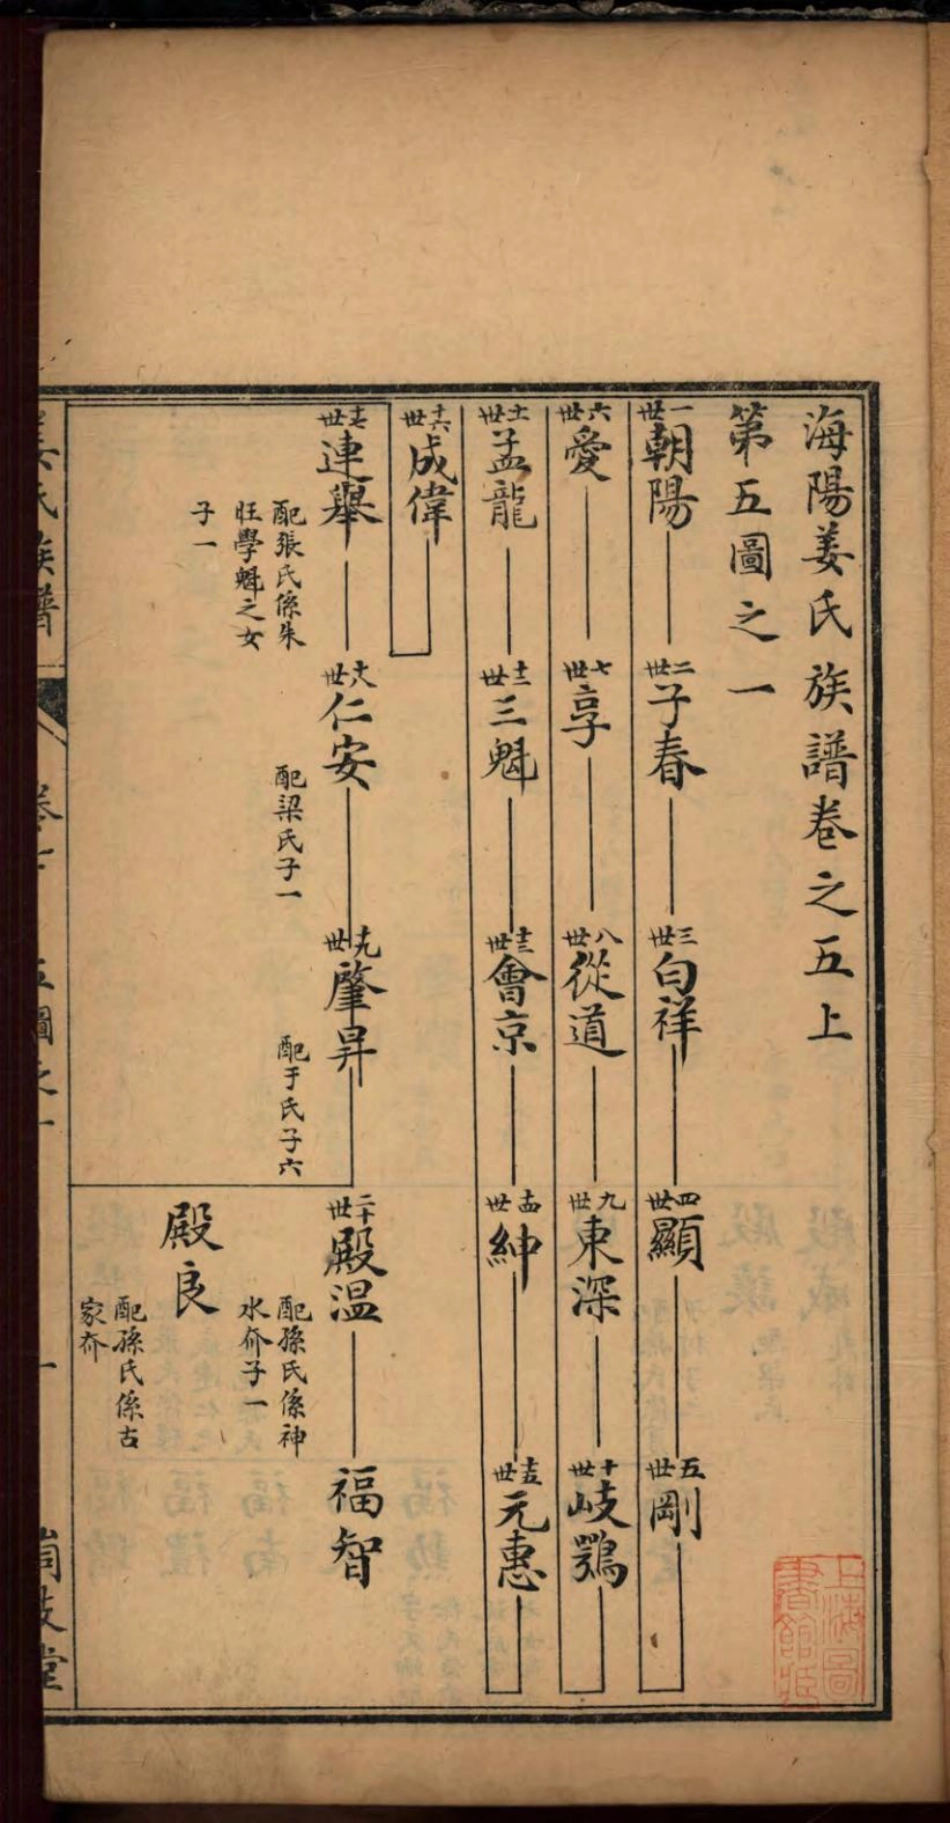 海陽姜氏族譜卷之五上
第五圖之一
一世 朝陽 二世 子春 三世 白祥 四世 顯 五世 剛
六世 愛 七世 享 八世 從道 九世 東深 十世 岐鶚
十一世 孟龍 十二世 三魁 十三世 會京 十四世 紳 十五世 元惠
十六世 成偉
十七世 連舉 十八世 仁安 十九世 肇昇 二十世 殿温 福智
配張氏係朱
旺學魁之女
子一
配梁氏子一
配于氏子六
配孫氏係神
水夼子一
殿良
配孫氏係古
家夼
姜氏族譜
五圖之一
一
上海圖
書館藏